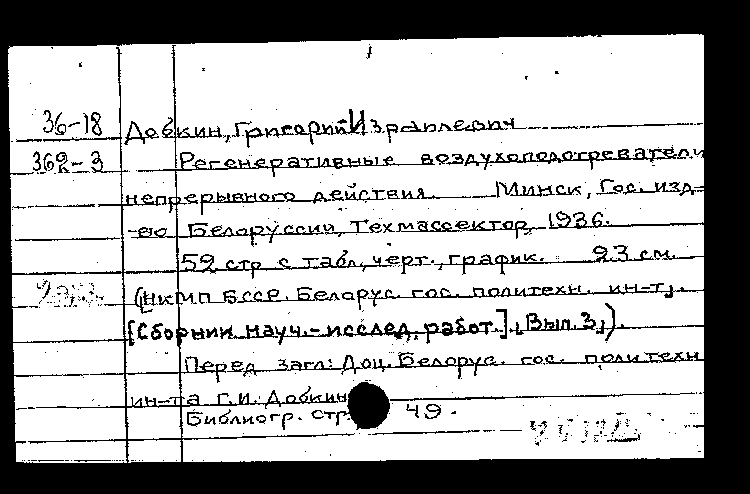 36-18 Добкин, Григорий Израилевич
362-3 Регенеративные воздухоподогреватели
непрерывного действия. Минск, Гос. изд-
-во Белоруссии, Техмассектор, 1936.
52 стр с табл., черт., график. 23 см.
(НКМП БССР. Белорус. гос. политехн. ин-т.
[Сборник науч.-исслед. работ.], Вып. 3,).
Перед загл: Доц. Белорус. гос. политехн
ин-та Г.И. Добкин
Библиогр. стр. 49.